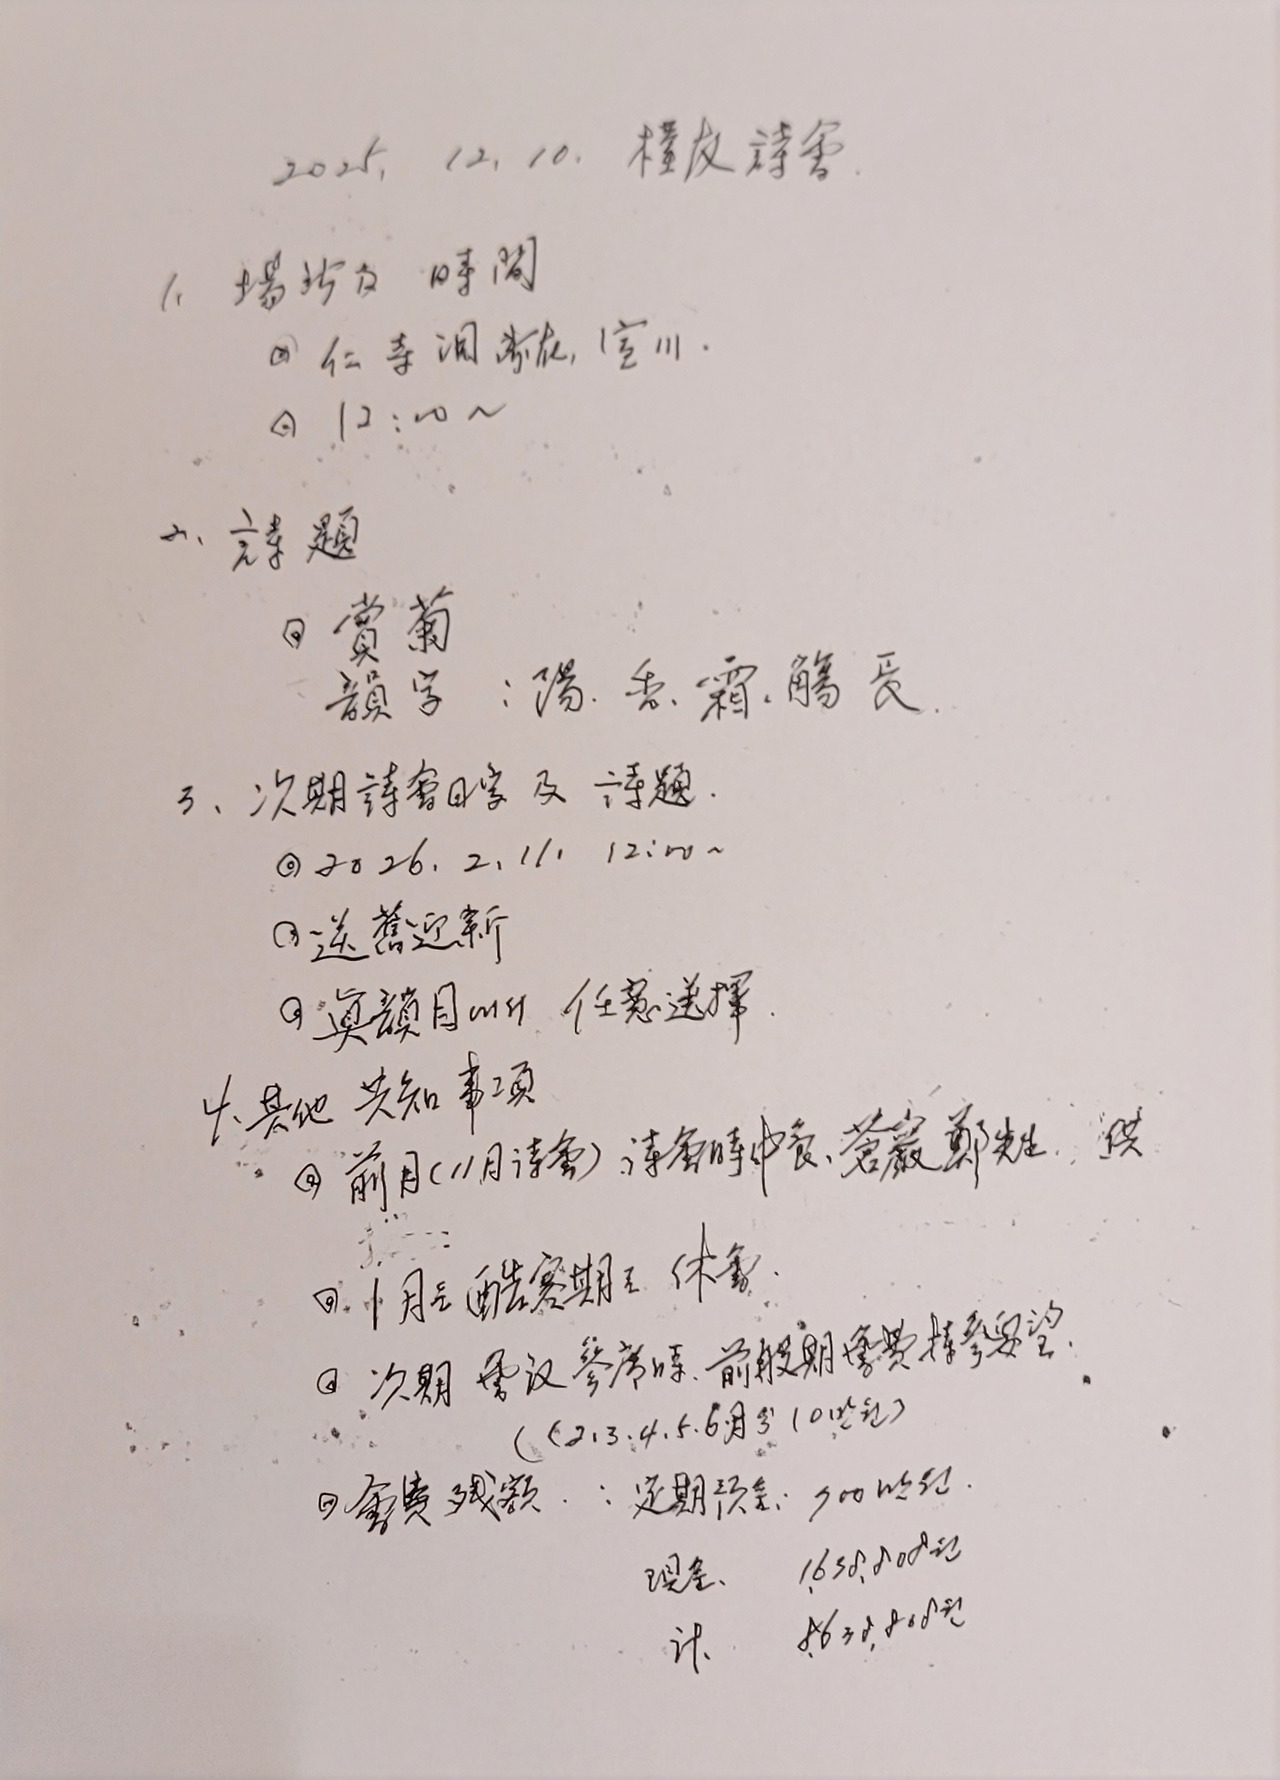 2025. 12. 10. 槿友詩會.
1. 場所及 時間
◎ 仁寺洞 宣川.
◎ 12:00~
2. 詩題
◎ 賞菊
韻字 : 陽. 香. 霜. 觴 長.
3. 次期詩會日字 及 詩題.
◎ 2026. 2. 11. 12:00~
◎ 送舊迎新
◎ 眞韻目에서 任意選擇.
4. 其他 共知事項
◎ 前月(11月詩會) 詩會時 中食, 蒼巖 鄭先生. 供
◎ 1月은 酷寒期로 休會.
◎ 次期 會议 參席時. 前般期 會費 持參要望.
((2.3.4.5.6月분 10만원)
◎ 會費残額. : 定期预金: 700만원.
現金. 1,638,808원
计. 8,638,808원